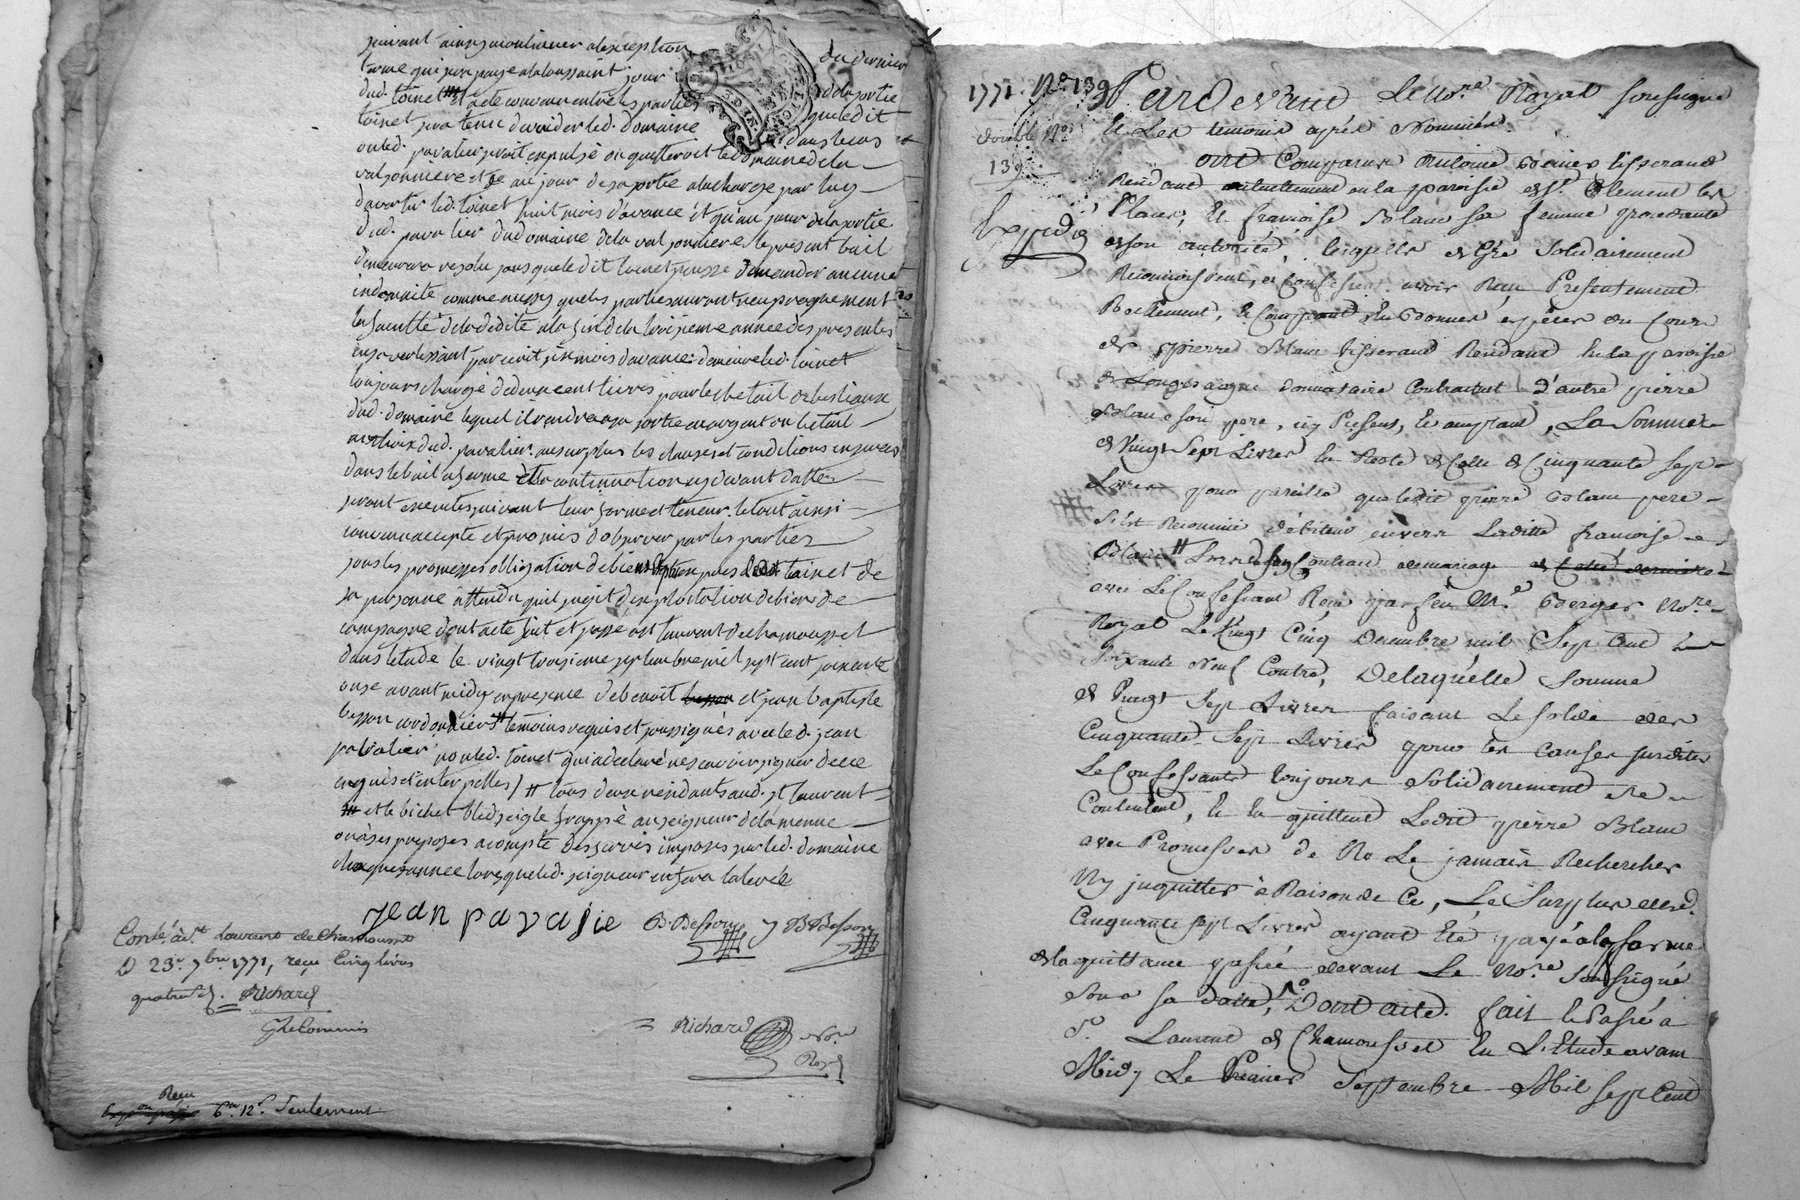 suivant ainsy continuer alexception du dernier
terme qui sera paye alatoussaint jour
dud. toinet et acte convenu entre les parties delasortie
toinet sera tenu devuider led. domaine queledit
ouled. pavalier seroit expulsé ou quitteroit le domaine dela dans lecas
valsonniere et ce au jour desasortie alacharge par luy
davertir led. toinet huit mois d'avance et qu'au jour delasortie
dud. pavalier dudomaine dela valsonniere le present bail
demeurera resolu sans queledit toinet puisse demander aucune
indemnité comme aussy queles parties auront reciproquement
la faculté deladedite alafin dela troisieme année des presentes
en savertissant par ecrit six mois davance: demeure led. toinet
toujours chargé de deux cent livres pour le chetail de bestiaux
dud. domaine lequel il rendra asa sortie en argent ou betail
au choix dud. pavalier. au surplus les clauses et conditions inserées
dans lebail aferme et la continuation cy devant dattés
seront executés suivant leur forme et teneur. letout ainsi
convenu accepté et promis d'observer par les parties
sous les promesses obligation de biens toinet de
sa personne attendu quil s'agit d'exploitation de biens de
campagne dont acte fait et passé a st laurent de chamousset
dans letude le vingt troisieme septembre mil sept cent soixante
onze avant midy en presence de benoit et jean baptiste
besson cordonniers temoins requis et soussignés avec led. jean
pavalier non led. toinet qui a declaré ne scavoir signer de ce
enquis et interpellés / # tous deux residants aud. st laurent
# et le bichet bled seigle frappé au seigneur de la menue
ou à ses preposés a compte des servis imposés sur led. domaine
chaque année lorsque led. seigneur en fera la levée
Jean pavalie B Besson J B Besson
Contlé à st Laurent de Chamousset
le 23e 7bre 1771, reçu Cinq livres
quatre s. Richard
Richard Nore
Royal
Reçu
6lt 12s Seulement
1771. No. 139 Pardevant Le Nore Royal soussigné
double No. & Les temoins aprés Nommés.
139 ont Comparus Antoine tisserand
Résidant actuellement en la paroisse de St. Clement les
Expédié Places, & françoise Blanc sa femme procedante
de son autorité, lesquels de Gré Solidairement
Reconnoissent, et Confessent avoir Reçu Presentement
Reellement, & Comptant En Bonnes espèces du Cours
de pierre Blanc tisserand Résidant En la paroisse
de Longesaigne donnataire Contractuel d'autre pierre
Blanc son pere, icy Present, & acceptant, La Somme
de Vingt Sept Livres En Reste de Celle de Cinquante sept
Livres pour pareille que ledit pierre Blanc pere
s'est Reconnu débiteur envers Laditte françoise
Blanc # Contrat de mariage
avec Le Confessant Reçu par feu Me. Nore
Royal Le Vingt Cinq Decembre mil Sept Cent
Soixante Neuf Contrô, De laquelle Somme
de Vingt Sept Livres faisant Le solde des
Cinquante Sept Livres pour les causes susdites
Le Confessants toujours Solidairement se
Contentent, & En quittent Ledit pierre Blanc
avec Promesses de Ne Le jamais Rechercher
Ny inquitter à Raison de Ce, Le Surplus desd.
Cinquante sept Livres ayant Eté payé à la forme
de la quittance passée devant Le Nore. Soussigné
sous sa datte, Dont acte. fait & Passé à
St. Laurent de Chamousset En L'Etude avant
Midy Le Premier Septembre Mil Sept Cent